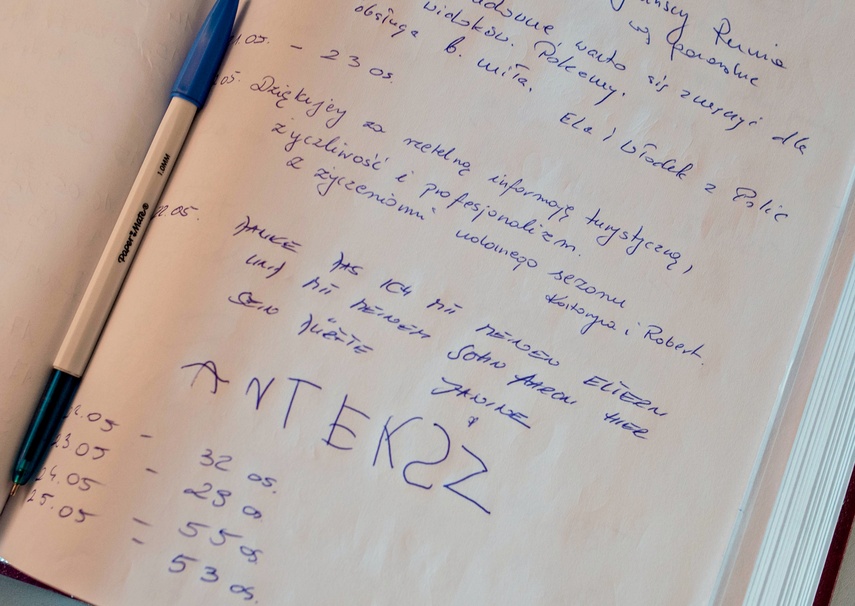 warto się zwrócić dla
widoków. Polecamy.
obsługa b. miła.
Ela i Władek z Polic
.05. - 23 os.
.05. Dziękujęy za rzetelną informację turystyczną,
życzliwość i profesjonalizm.
Z życzeniami udanego sezonu
Katarzyna i Robert.
.05.
DANKE DAS ICH MIT MEINEN ELTERN
UND MIT MEINEM SOHN AARON HIER
SEIN DÜRFTE
JANINE
ANTEKSZ
.05 - 32 os.
23.05 - 29 os.
24.05 - 55 os.
25.05 - 53 os.
PAPER MATE® 1.0MM